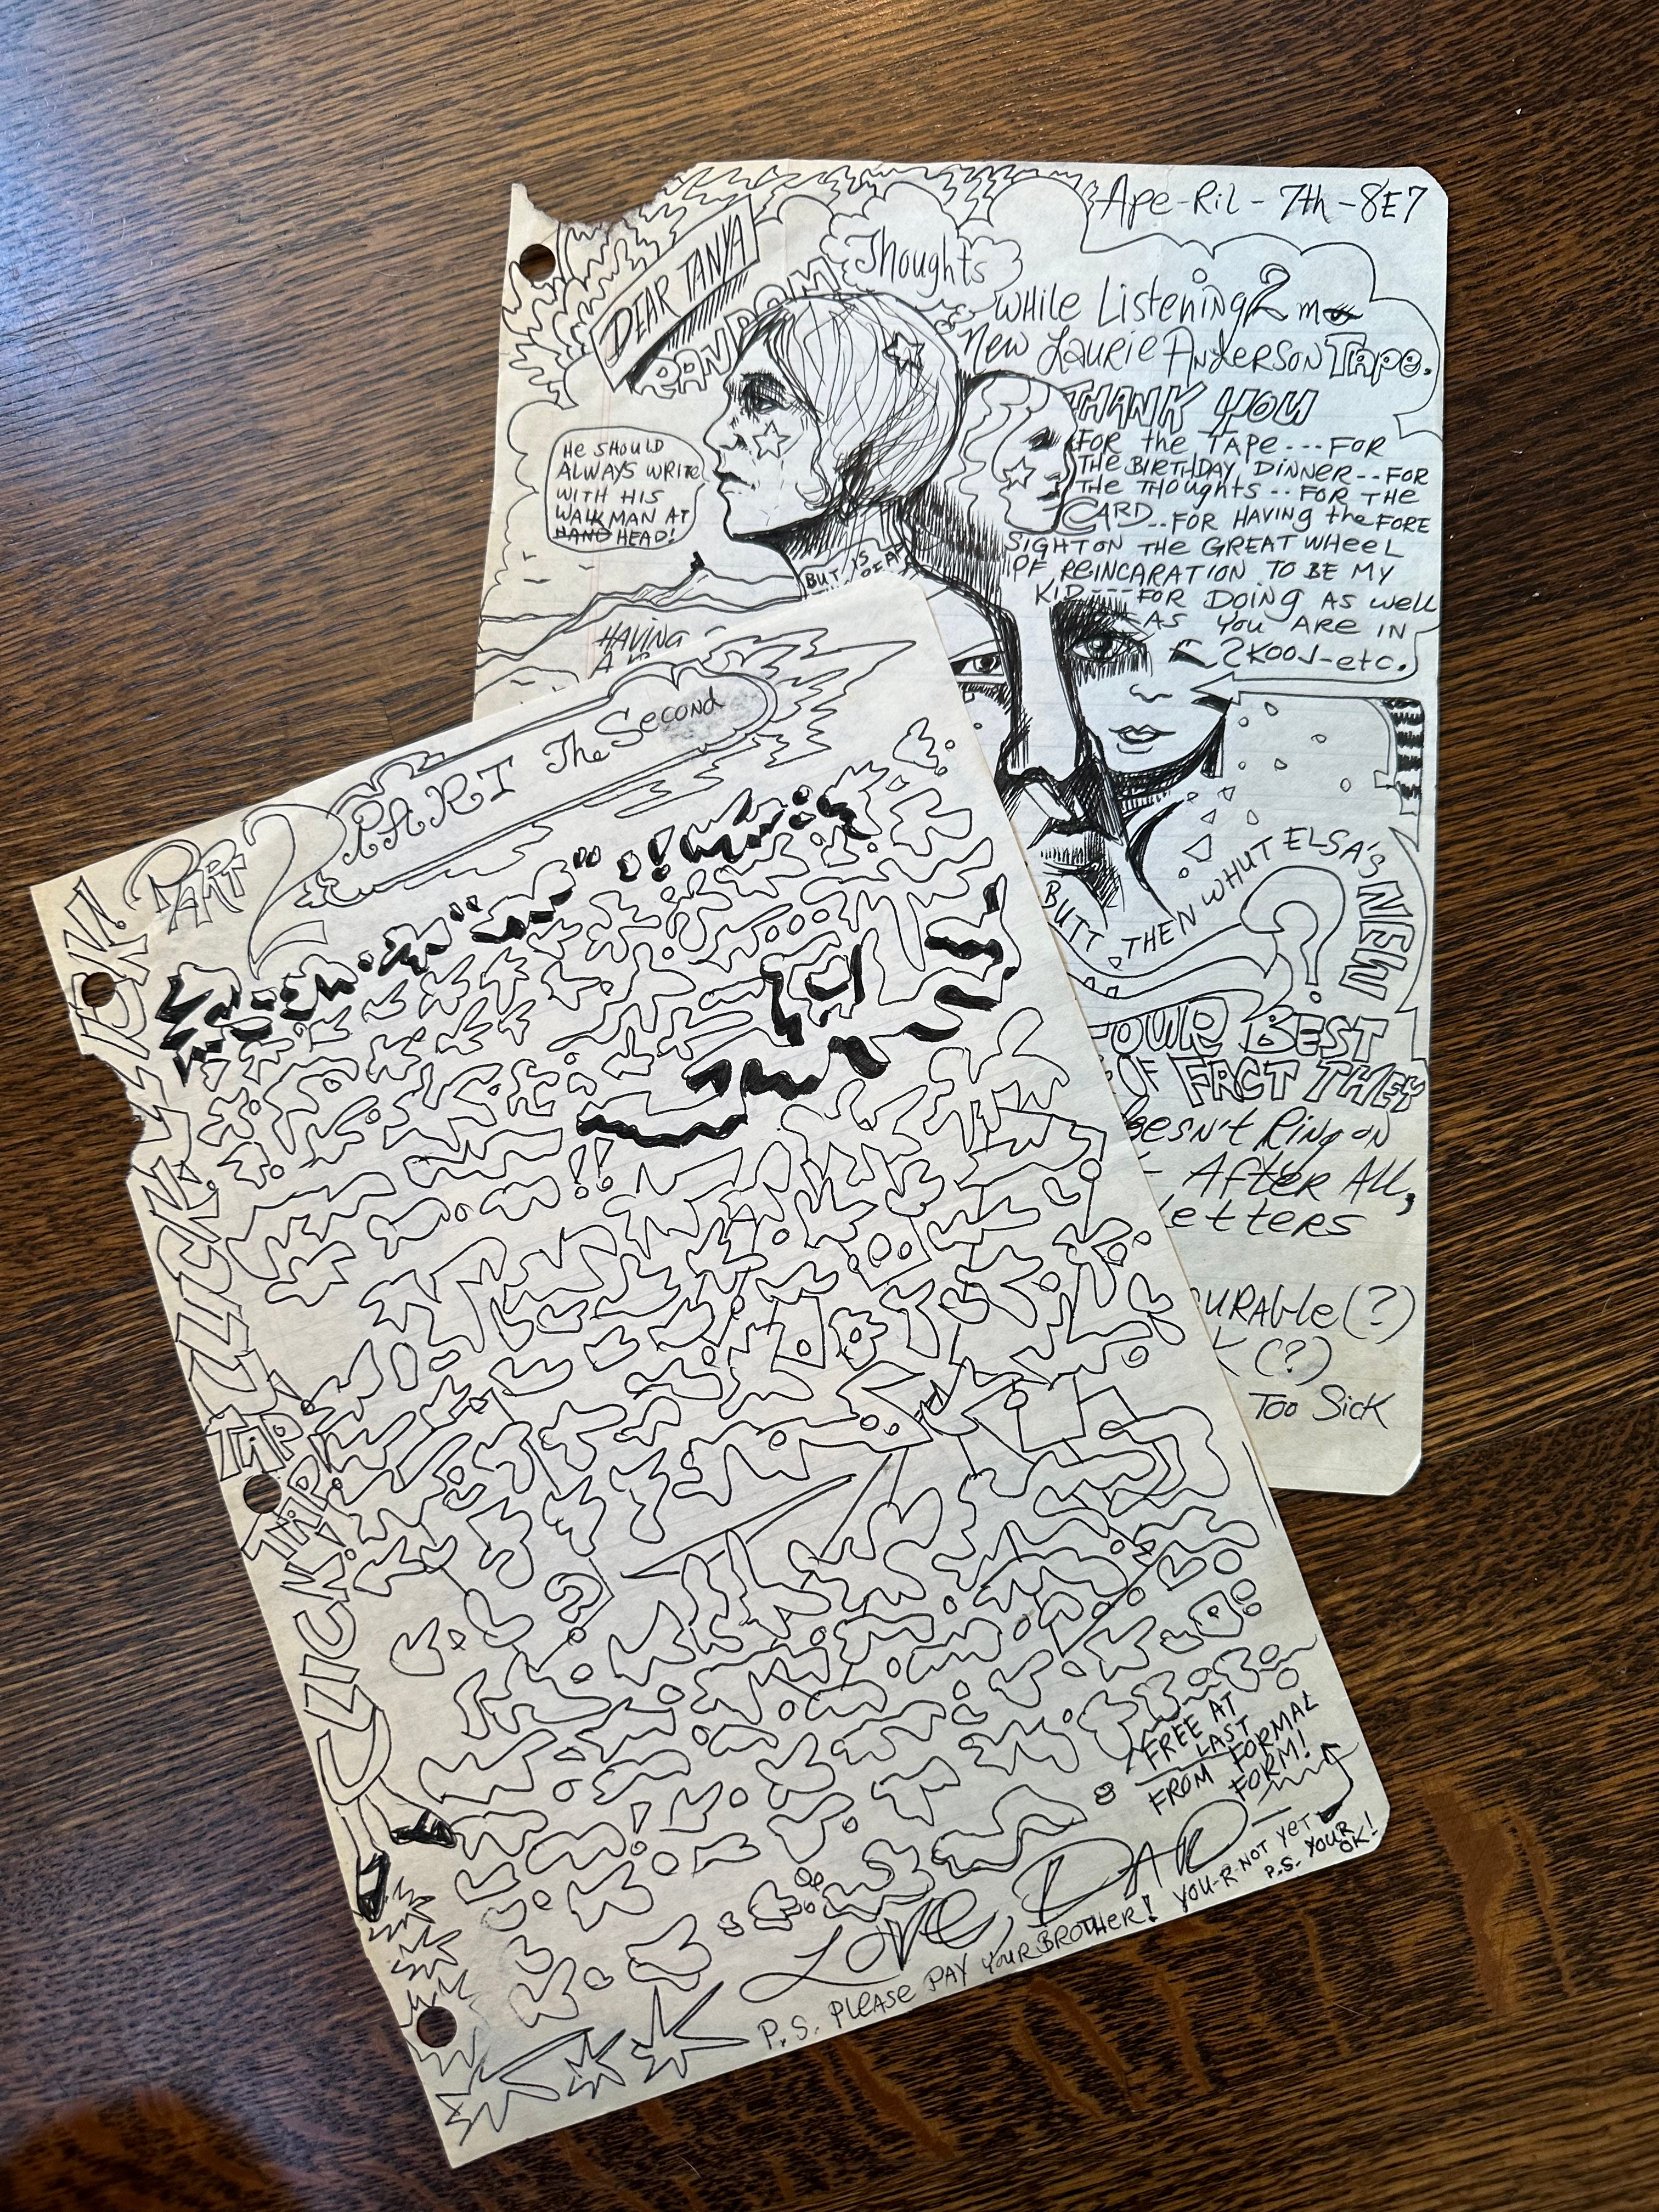 Ape-Ril-7th-8E7
DEAR TANYA
RANDOM
Thoughts
While Listening 2 m
New Laurie Anderson Tape.
THANK YOU
FOR the TAPE---FOR
THE BIRTHDAY DINNER--FOR
THE THOUGHTS..FOR THE
CARD...FOR HAVING the FORE
SIGHT ON THE GREAT WHEEL
OF REINCARATION TO BE MY
KID---FOR DOING AS WELL
AS YOU ARE IN
SKOOL-etc.
HE SHOULD
ALWAYS WRITE
WITH HIS
WALKMAN AT
HAND HEAD!
BUT IS
HAVING
A
BUTT, THEN WHUT ELSA'S NEW
?
FOUR BEST
OF FACT THEY
oesn't Ring on
After All,
Letters
URAble (?)
(?)
Too Sick
PART 2
PART The Second
CLICK!
CLICK!
TAP!
TAP!
CLICK!
CLICK
FREE AT
LAST
FROM FORMAL
FORM!
LOVE, DAD
P.S. PLEASE PAY YOUR BROTHER! YOU-R-NOT YET
P.S. YOUR
OK!